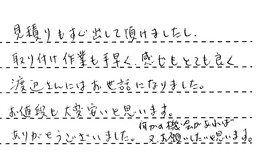 見積りもすぐ出して頂けましたし、
取り付け作業も手早く感じもとても良く
渡辺さんにはお世話になりました。
お値段も大変安いと思います。
ありがとうございました。何かの機会があれば
又お願いしたいと思います。